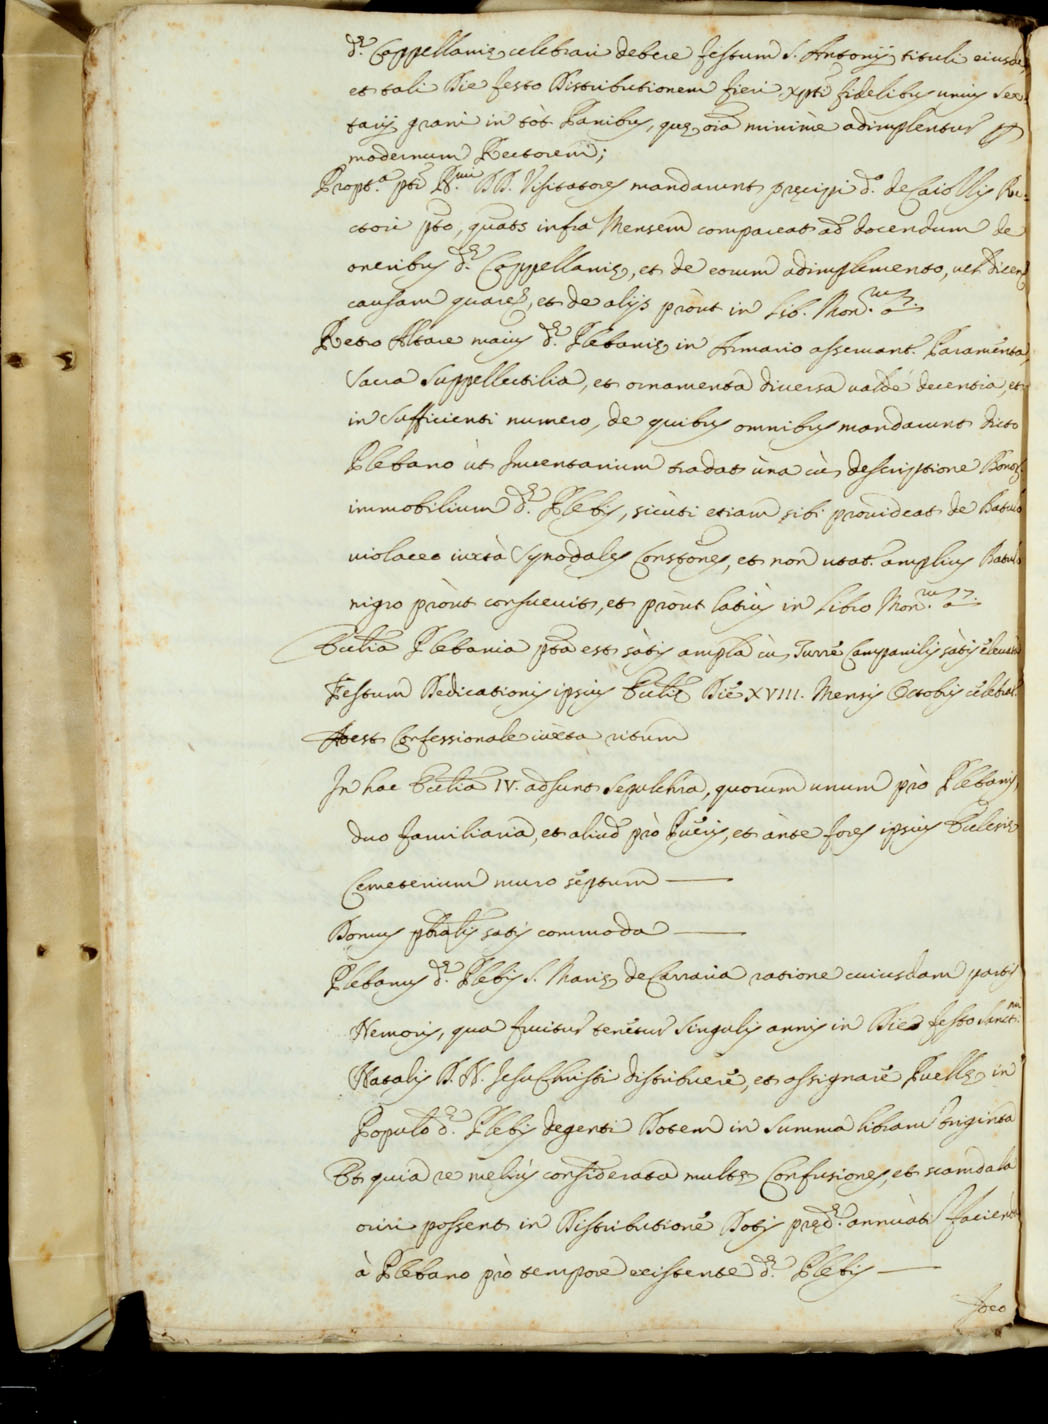 d.ę Cappellanię celebrari debere festum S. Antonij tituli eiusdē,
et tali Die festo Distributionem fieri xpti fidelibus unius Sex-
tarij grani in tot Panibus, quę oīa minimè adimplentur p
modernum Rectorem;
Propt.a pti R.mi DD. Visitatores mandarunt pręcipi d.o de Caiollis Re-
ctori pto, quats infra Mensem compareat ad docendum de
oneribus d.ę Cappellanię, et de eorum adimplemento, vel dicend
causam quare &, et de alijs proùt in Lib. Mon.rum
Retro Altare maius d.ę Plebanię in Armario asseruant.r Paramenta,
Sacra Suppellectilia, et ornamenta diversa valdè decentia, et
in sufficienti numero, de quibus omnibus mandarunt dicto
Plebano ùt Inventarium tradat ùna cū descriptione Bonor.
immobilium d.ę Plebis, sicùti etiam sibi provideat de Batulo
violaceo iuxtà Synodales Constōnes, et non utat.r amplius Batulo
nigro proùt consuevit, et proùt latius in Libro Mon.rum
Ecclia Plebania pta est sàtis ampla cū Turre Campanilis sàtis elevata
Festum Dedicationis ipsius Ecclię Die XVIII. Mensis Octobris celebrat.r
Adest Confessionale iùxta ritum
In hac Ecclia IV. adsunt Sepulchra, quorum unum prò Plebanis,
duo familiaria, et aliud prò Pueris, et ànte fores ipsius Ecclesię
Cemeterium muro septum
Domus pbralis satis commoda
Plebanus d.ę Plebis S. Marię de Carraria ratione cuiusdam partis
Nemoris, qua fruitur tenetur singulis annis in Die festo Sanct.mi
Natalis D. N. Jesu Christi distribuere, et assignare Puellę in
Populo d.ę Plebis degenti Dotem in summa librarum triginta
Et quia re melius considerata multę Confusiones, et scandala
oriri possent in Distributione Dotis pręd.ę annuàti faciend
à Plebano prò tempore existente d.ę Plebis